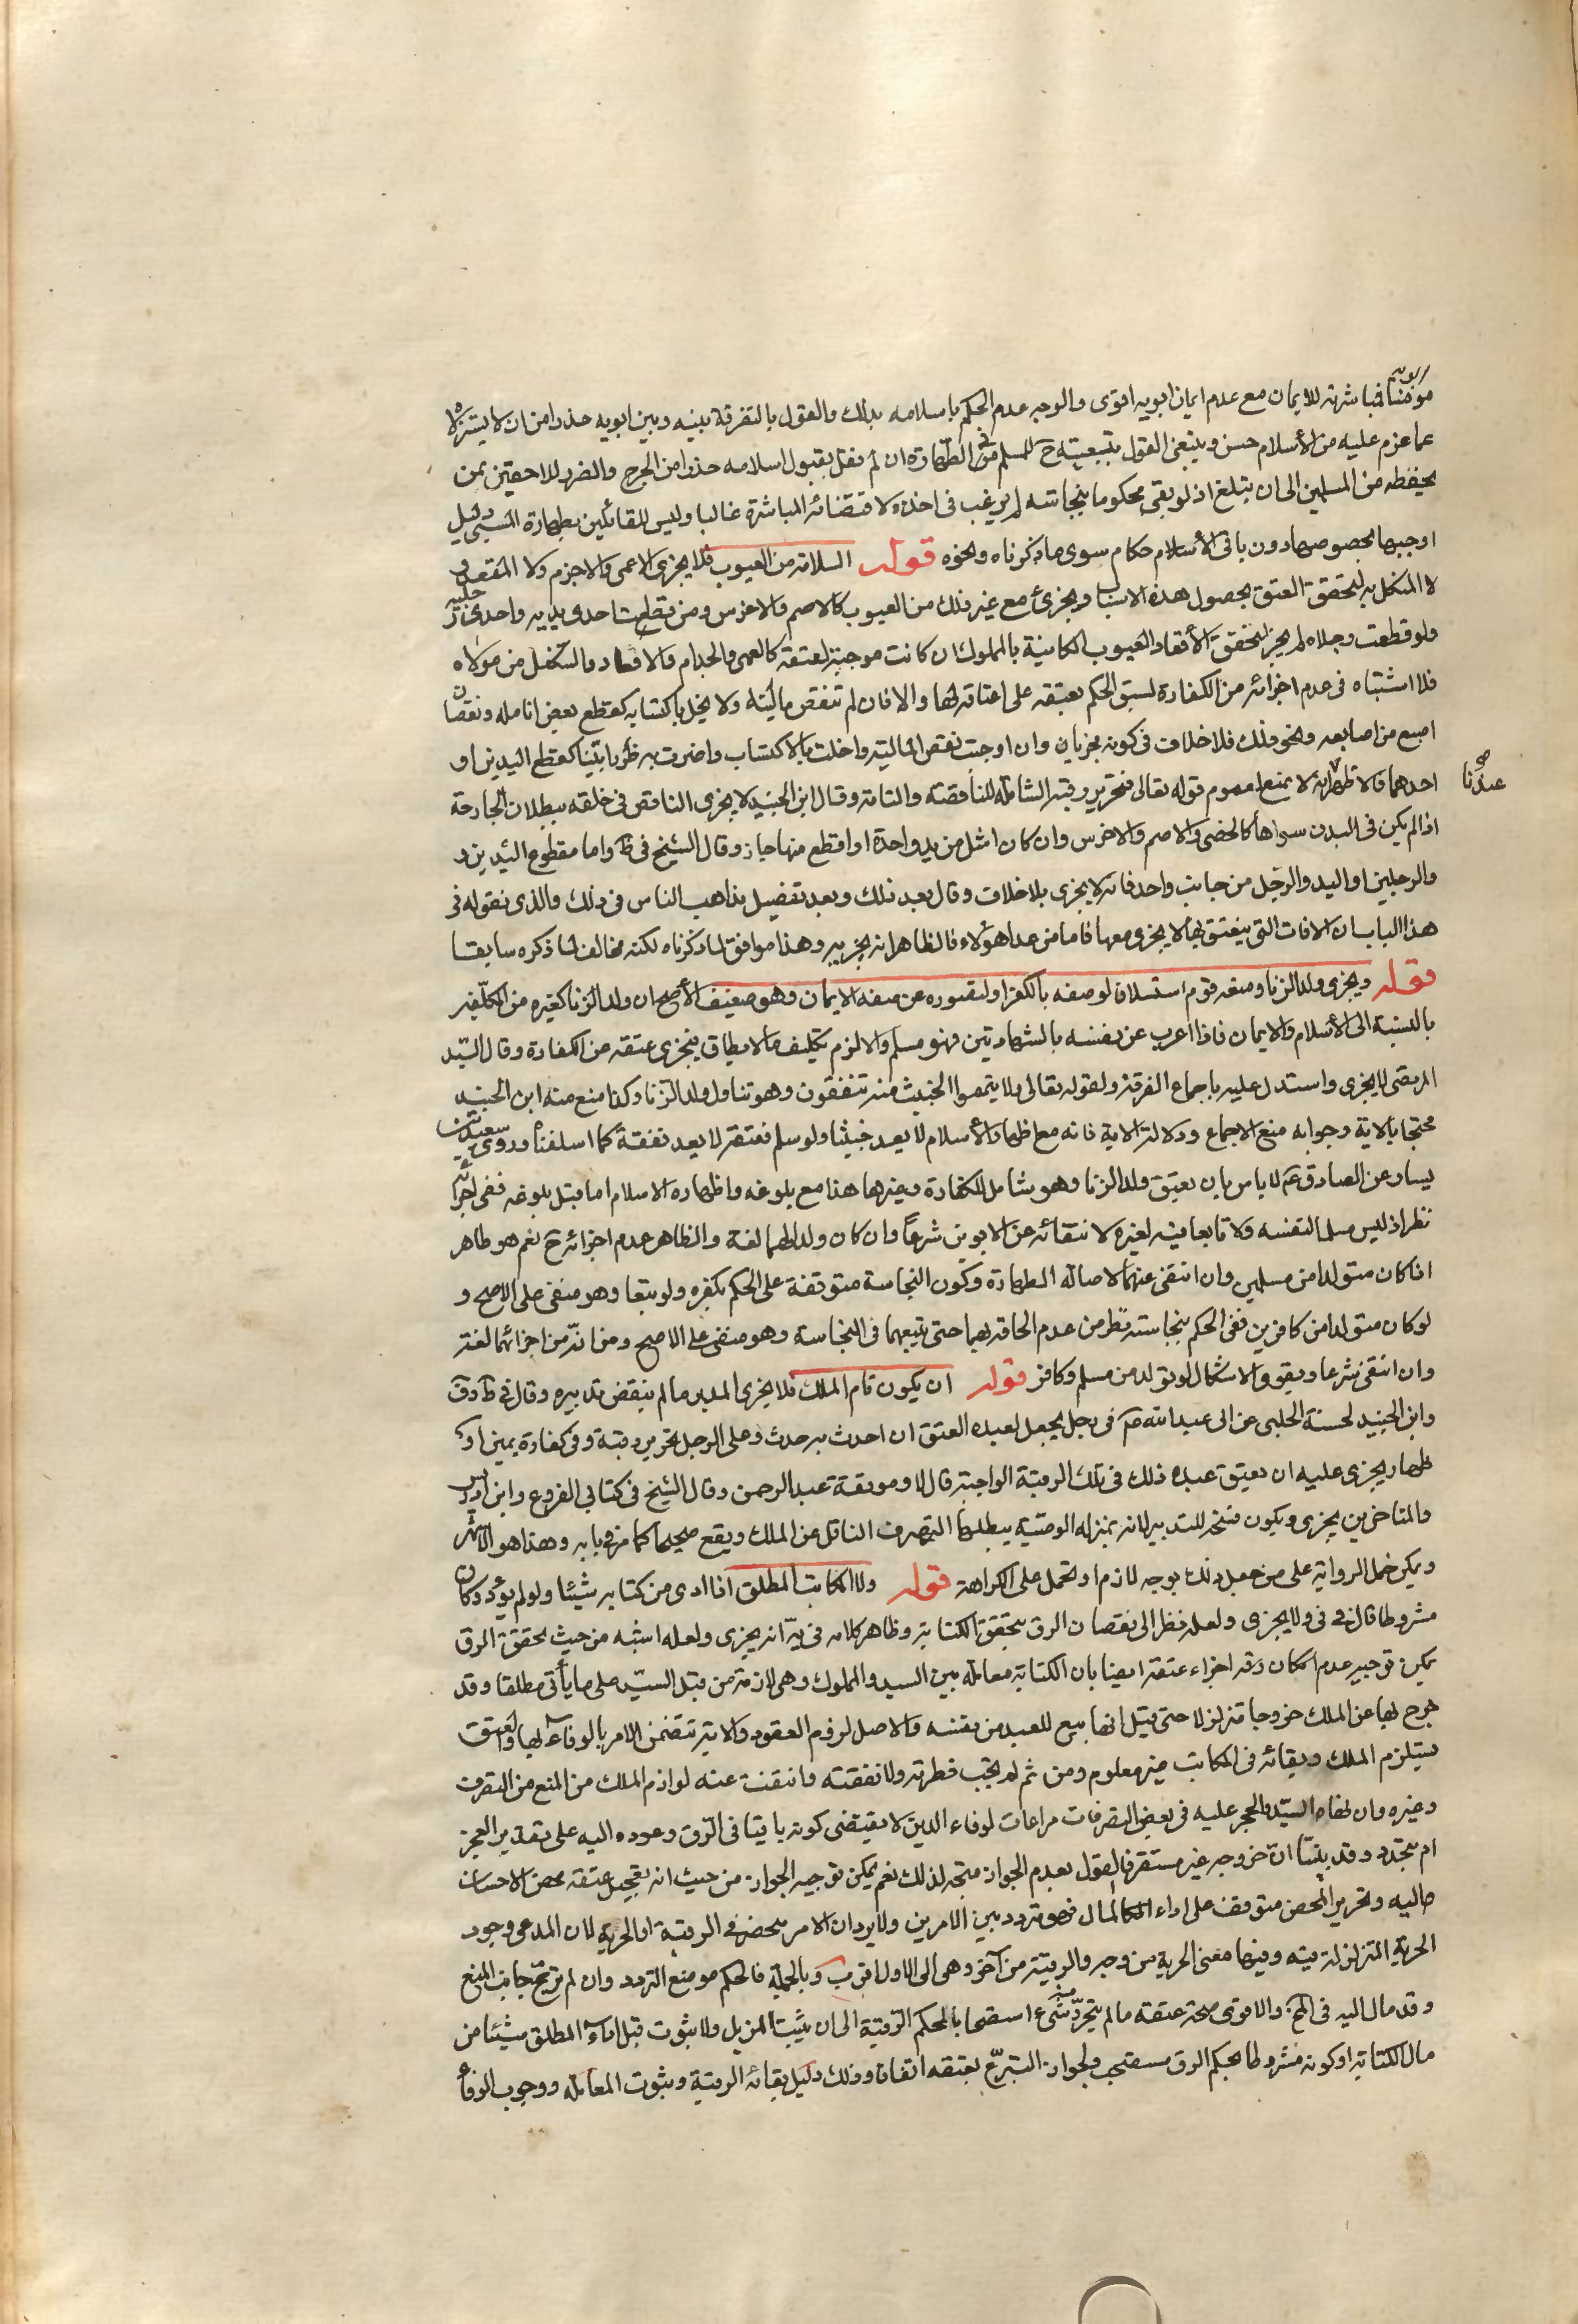 مؤمنا فمباشرته للايمان مع عدم ايمان ابويه اقوى والوجه عدم الحكم باسلامه بذلك والقول بالتفرقة بينه وبين ابويه حذرا من ان لا يستزلاه
عما عزم عليه من الأسلام حسن وينبغى القول بتبعيته ح للمسلم فى الطهارة ان لم نقل بقبول اسلامه حذرا من الحرج والضرر للاحقين بمن
يحفظه من المسلمين الى ان يبلغ اذ لو بقى محكوما بنجاسته لم يرغب فى اخذه لاقتضائه المباشرة غالبا وليس للقائلين بطهارة المسبى دليل
اوجبها بخصوصها دون باقى الأسلام حكام سوى ما ذكرناه ونحوه قوله السلامة من العيوب فلا يجزى الاعمى والاجزم ولا المقعد و
لا المنكل به لتحقق العتق بحصول هذه الاسباب ويجزئ مع غير ذلك من العيوب كالاصم والاخرس ومن قطعت احدى يديه واحدى رجليه
ولو قطعت رجلاه لم يجز لتحقق الأقعاد العيوب الكائنية بالمملوك ان كانت موجبة لعتقه كالعمى والجذام والاقعاد والتنكيل من مولاه
فلا اشتباه فى عدم اجزائه من الكفارة لسبق الحكم بعتقه على اعتاقه لها والا فان لم تنقص ماليته ولا يخل باكتسابه كقطع بعض انامله ونقصان
اصبع من اصابعه ونحو ذلك فلا خلاف فى كونه مجزيا وان اوجبت نقص المالية واخلت بالاكتساب واضرت به ضررا بينا كقطع اليدين او
احدهما فالاظهر انه لا يمنع لعموم قوله تعالى فتحرير رقبة الشاملة للناقصة والتامة وقال ابن الجنيد لا يجزى الناقص فى خلقه ببطلان الجارحة
اذا لم يكن فى البدن سواها كالخصى والاصم والاخرس وان كان اشل من يد واحدة او اقطع منها جاز وقال الشيخ فى ط واما مقطوع اليدين و
والرجلين او اليد والرجل من جانب واحد فانه لا يجزى بلا خلاف وقال بعد ذلك وبعد تفضيل مذاهب الناس فى ذلك والذى نقوله فى
هذا الباب ان الافات التى ينعتق بها لا يجزى معها فاما من عدا هؤلاء فالظاهر انه يجزيه وهذا موافق لما ذكرناه لكنه مخالف لما ذكره سابقا
قوله ويجزى ولد الزنا ومنعه قوم استسلافا لوصفه بالكفر او لقصوره عن صفه الايمان وهو ضعيف الأصح ان ولد الزنا كغيره من المكلفين
بالنسبة الى الأسلام والايمان فاذا اعرب عن نفسه بالشهادتين فهو مسلم والا لزم تكليف ما لا يطاق فيجزى عتقه عن الكفارة وقال السيد
المرتضى لا يجزى واستدل عليه باجماع الفرقة ولقوله تعالى ولا تيمموا الخبيث منه تنفقون وهو تناول ولد الزنا وكذا منع منه ابن الجنيد
محتجا بالاية وجوابه منع الاجماع ودلالة الاية فانه مع اظهار الأسلام لا يعد خبيثا ولو سلم فعتقه لا يعد نفقة كما اسلفنا وروى سعيد بن
يسار عن الصادق ع لا باس بان يعتق ولد الزنا وهو شامل للكفارة وغيرها هذا مع بلوغه واظهاره الاسلام اما قبل بلوغه ففى اجزائه
نظر اذ ليس مسلما لنفسه ولا تابعا فيه لغيره لانتفائه عن الابوين شرعا وان كان ولدا لهما لغة والظاهر عدم اجزائه ح نعم هو طاهر
اذا كان متولدا من مسلمين وان انتفى عنهما لاصالة الطهارة وكون النجاسة متوقفة على الحكم بكفره ولو تبعا وهو منفى على الاصح و
لو كان متولدا من كافرين ففى الحكم بنجاسته نظر من عدم الحاقه بهما حتى يتبعهما فى النجاسة وهو منفى على الاصح ومن انه من اجزائهما لغة
وان انتفى شرعا ويقوى الاشكال لو تولد من مسلم وكافر قوله ان يكون تام الملك فلا يجزى المدبر ما لم ينقض تدبيره وقال فى ط و ف
وابن الجنيد لحسنة الحلبى عن ابى عبد الله ع فى رجل يجعل لعبده العتق ان احدث به حدث وعلى الرجل تحرير رقبة وفى كفارة يمين او
ظهار يجزى عليه ان يعتق عبده ذلك فى تلك الرقبة الواجبة قال لا وموثقة عبد الرحمن وقال الشيخ فى كتابى الفروع وابن ادريس
والمتاخرين يجزى ويكون فسخا للتدبير لانه بمنزلة الوصية يبطلها التصرف الناقل عن الملك ويقع صحيحا كما مر فى بابه وهذا هو الاشهر
ويمكن حمل الرواية على من جعل ذلك بوجه لازم او تحمل على الكراهة قوله ولا المكاتب المطلق اذا ادى من كتابه شيئا ولو لم يؤد وكان
مشروطا قال فى ف ولا يجزى ولعله نظر الى نقصان الرق بتحقق الكتابة وظاهر كلامه فى ية انه يجزى ولعله اشبه من حيث تحقق الرق
يمكن توجيه عدم امكان رقه اجزاء عتقه ايضا بان الكتابة معاملة بين السيد والمملوك وهى لازمة من قبل السيد على ما يأتى مطلقا وقد
خرج بها عن الملك خروجا متزلزلا حتى قيل انها بيع للعبد من نفسه والاصل لزوم العقود والاية تتضمن الامر بالوفاء بها والعتق
يستلزم الملك وبقائه فى المكاتب غير معلوم ومن ثم لم تجب فطرته ولا نفقته وانتفت عنه لوازم الملك من المنع من التصرف
وغيره وان لقاء السيد والحجر عليه فى بعض التصرفات مراعات لوفاء الدين لا يقتضى كونه باقيا فى الرق وعوده اليه على تقدير العجز
ام متجدد وقد بينا ان خروجه غير مستقر فالقول بعدم الجواز متجه لذلك نعم يمكن توجيه الجواز من حيث انه تعجيل عتقه محض الاحسان
اليه وتحرير المحض متوقف على اداء المال فهو متردد بين الامرين ولا يرد ان الامر منحصر فى الرقية او الحرية لان المدعى وجود
الحرية المتزلزلة فيه وفيها معنى الحرية من وجه والرقية من آخر وهى الى الاول اقرب وبالجملة فالحكم موضع التردد وان لم يرجح جانب المنع
وقد مال اليه فى المخ والاقوى صحة عتقه ما لم يتحرر منه شىء استصحابا لحكم الرقية الى ان يثبت المزيل ولا بثوت قبل اداء المطلق شيئا من
مال الكتابة او كونه مشروطا بحكم الرق مستصحب ولجواز التبرع بعتقه اتفاقا وذلك دليل بقائه الرقية وبثوت المعاملة ووجوب الوفاء